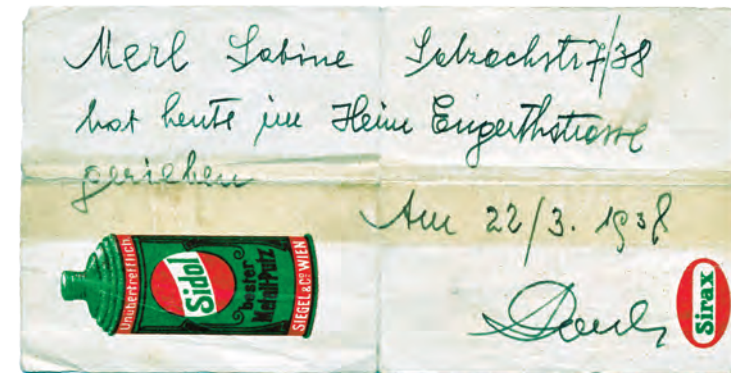 Merl Sabine Salzachstr 7/38
hat heute im Heim Engerthstrasse
gerieben
Am 22/3. 1938
Unübertrefflich
Sidol
bester
Metall-Putz
SIEGEL & Co WIEN
Sirax